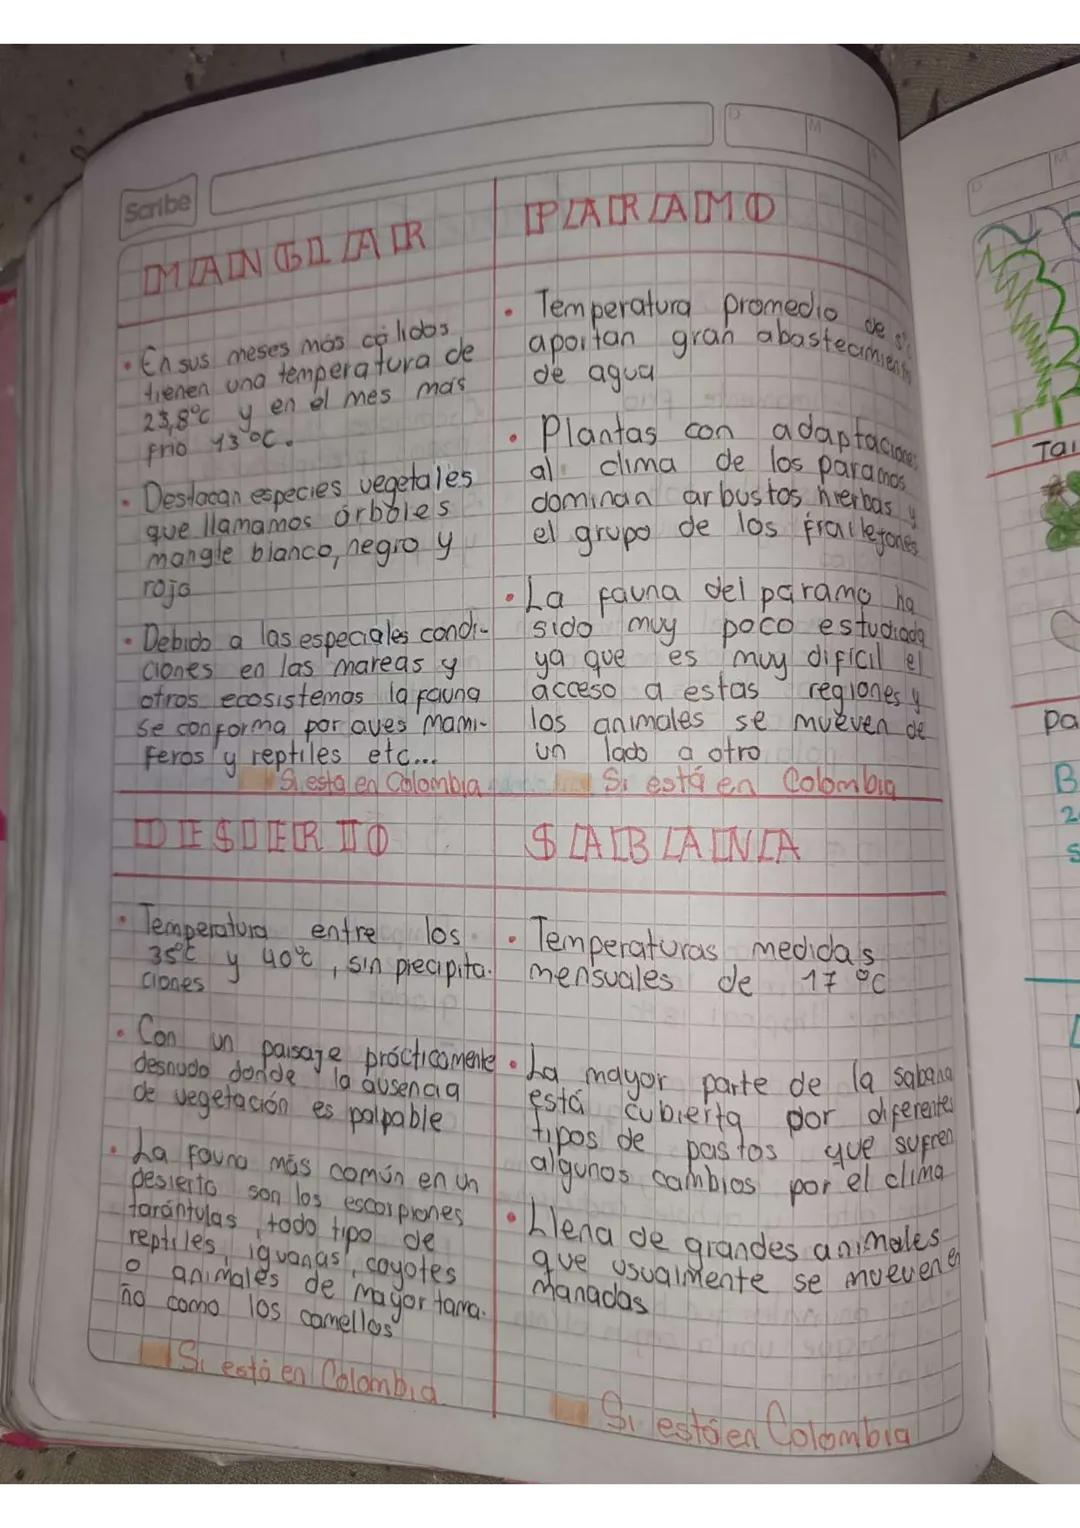 Scribe
D
M
A
MANGLAR
• En sus meses más cálidos
tienen una temperatura de
23,8°c y en el mes mas
frio 13°C.
• Destacan especies vegetales
que llamamos árboles
mangle blanco, negro y
rojo
• Debido a las especiales condi-
ciones en las mareas y
otros ecosistemas la fauna
se conforma por aves mami-
feros y reptiles etc...
Si esta en Colombia
PARAMO
• Temperatura promedio de
aportan gran abastecimiento
de agua
• Plantas con adaptaciones
al clima de los paramos
dominan arbustos hierbas y
el grupo de los frailejones
• La fauna del paramo ha
sido muy poco estudiada
ya que es muy dificil el
acceso a estas regiones y
los animales se mueven de
un lado a otro
Si está en Colombia
DESIERTO
• Temperatura entre los
35°c y 40°c, sin precipita-
ciones
• Con un paisaje prácticamente
desnudo donde la ausencia
de vegetación es palpable
• La fauna más común en un
desierto son los escorpiones
tarántulas, todo tipo de
reptiles, iguanas, coyotes
o animales de mayor tama-
ño como los camellos
Si está en Colombia
SABANA
• Temperaturas medidas
mensuales de 17 °C
• La mayor parte de la sabana
está cubierta por diferentes
tipos de pastos que sufren
algunos cambios por el clima
• Llena de grandes animales
que usualmente se mueven en
manadas
Si está en Colombia
D
M
Tai
pa
B
2
s